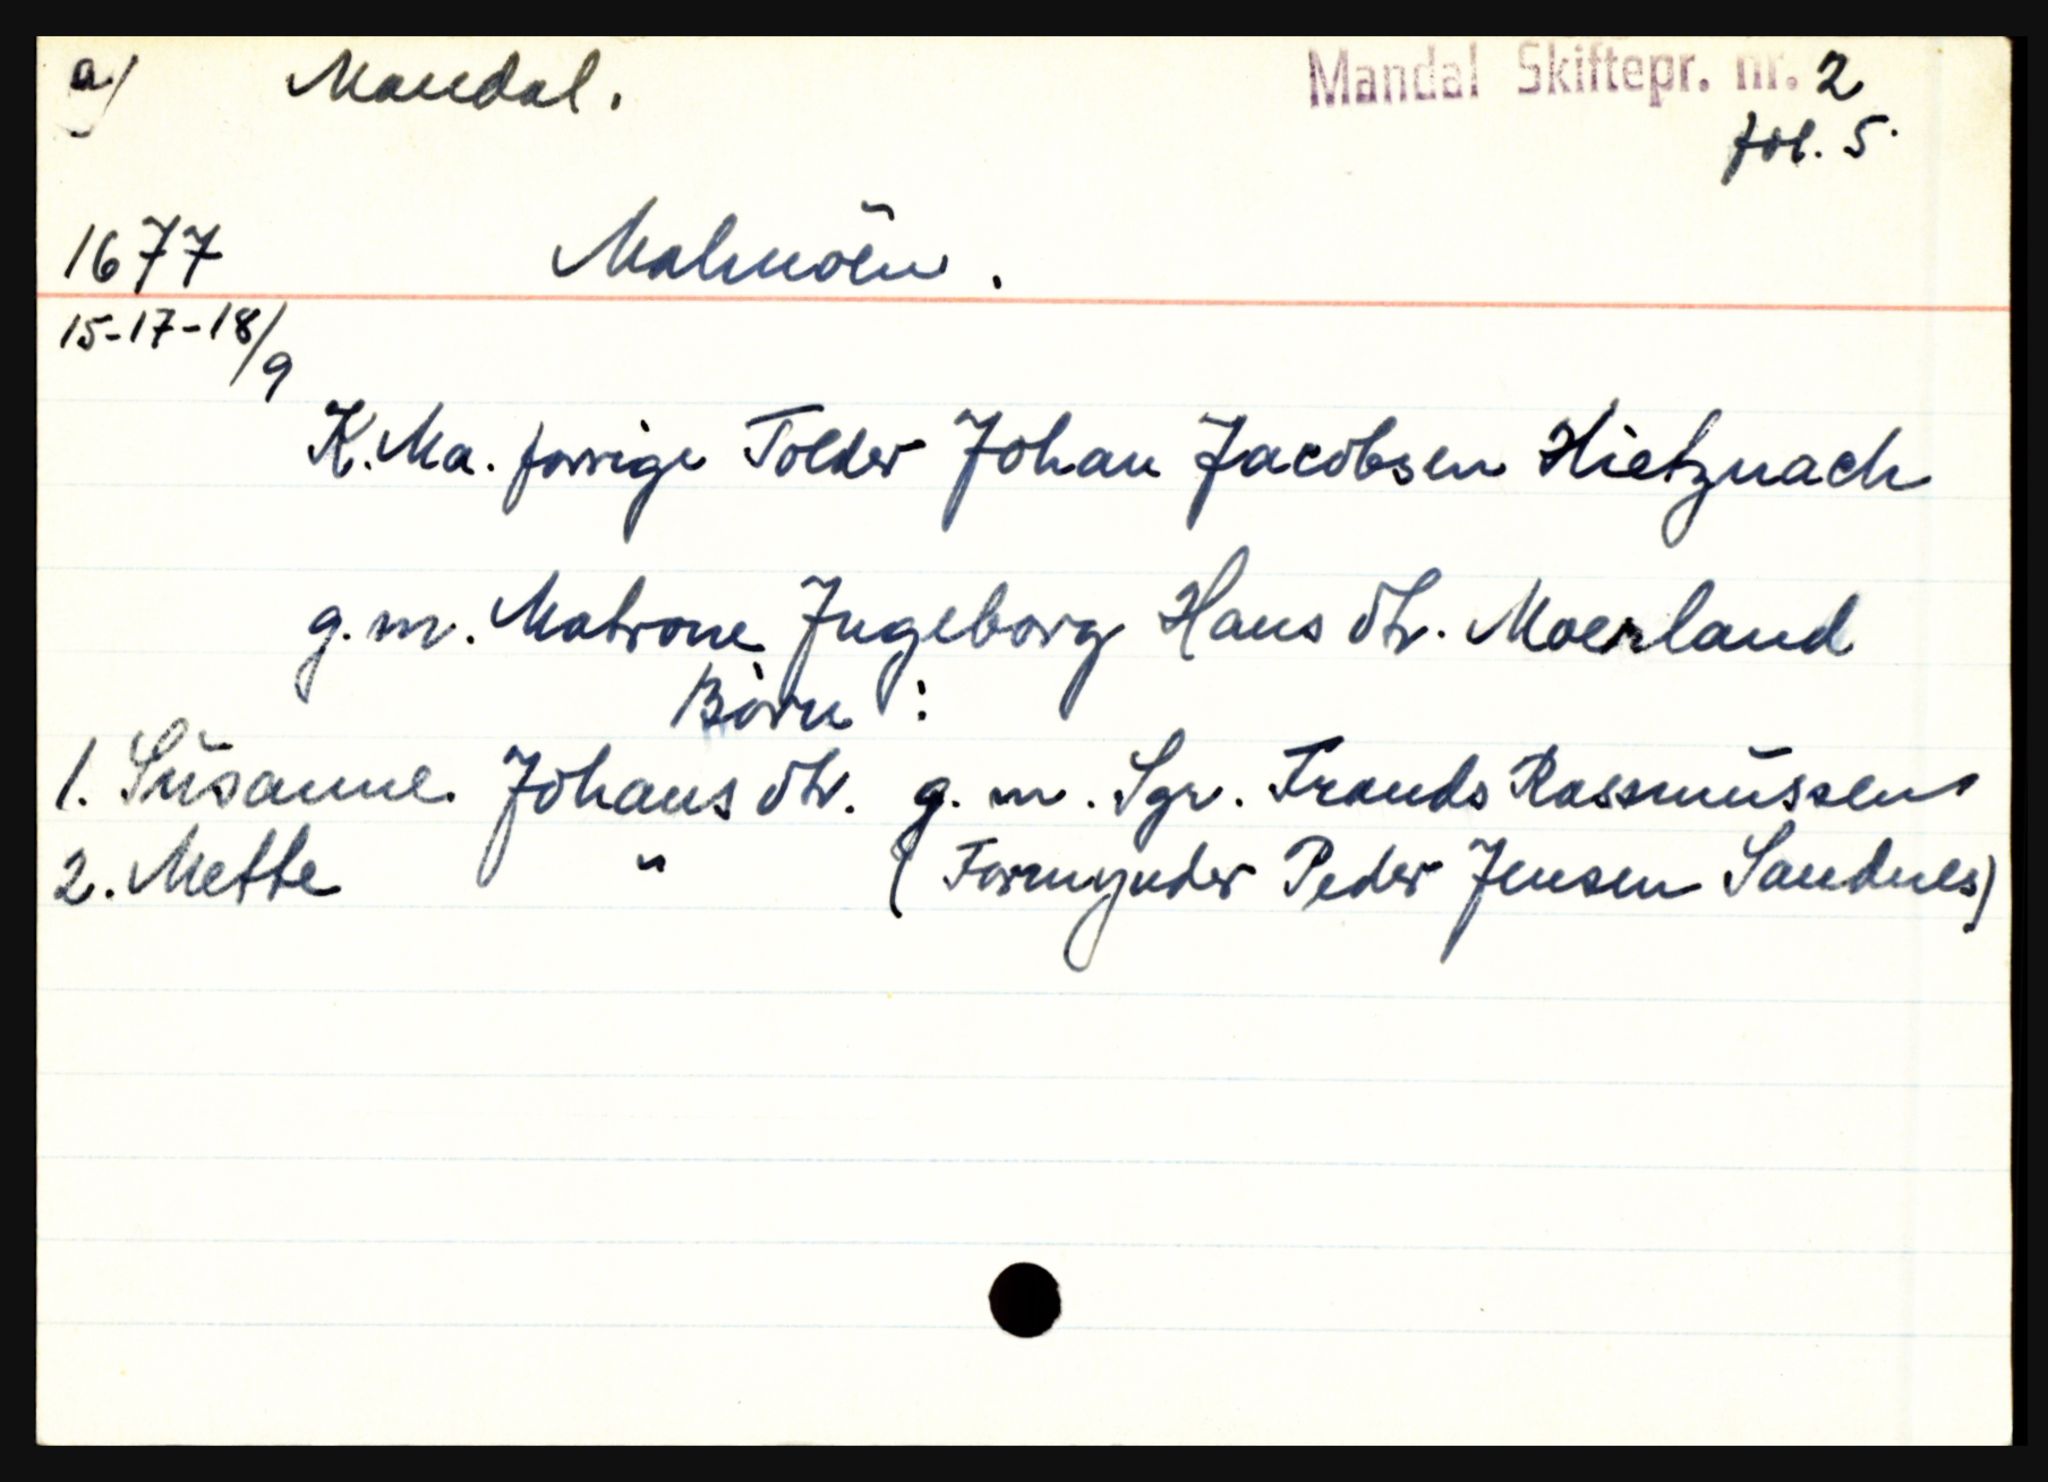 a) Mandal. Mandal Skiftepr. nr. 2
fol. 5.
1677 Malmöen.
15-17-18/9
K. Ma. forrige Tolder Johan Jacobsen Hietznach
g. m. Matrone Ingeborg Hans dtr. Moerland
Børn :
1. Susanne Johans dtr. g. m. Sgr. Frands Rassmussen
2. Mette " (Formynder Peder Jensen Sandnes)